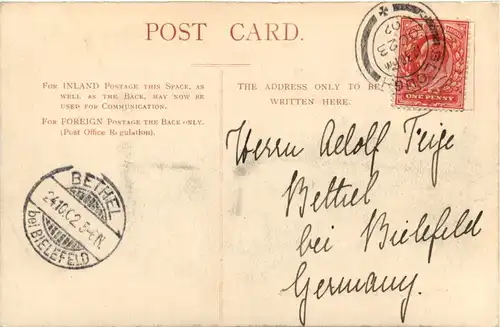 POST CARD.
FOR INLAND POSTAGE THIS SPACE, AS
WELL AS THE BACK, MAY NOW BE
USED FOR COMMUNICATION.
FOR FOREIGN POSTAGE THE BACK ONLY.
(Post Office Regulation).
THE ADDRESS ONLY TO BE
WRITTEN HERE.
ONE PENNY
Herrn Adolf Feige
Bethel
bei Bielefeld
Germany.
BETHEL
24.10.02. 5-6 N.
bei BIELEFELD